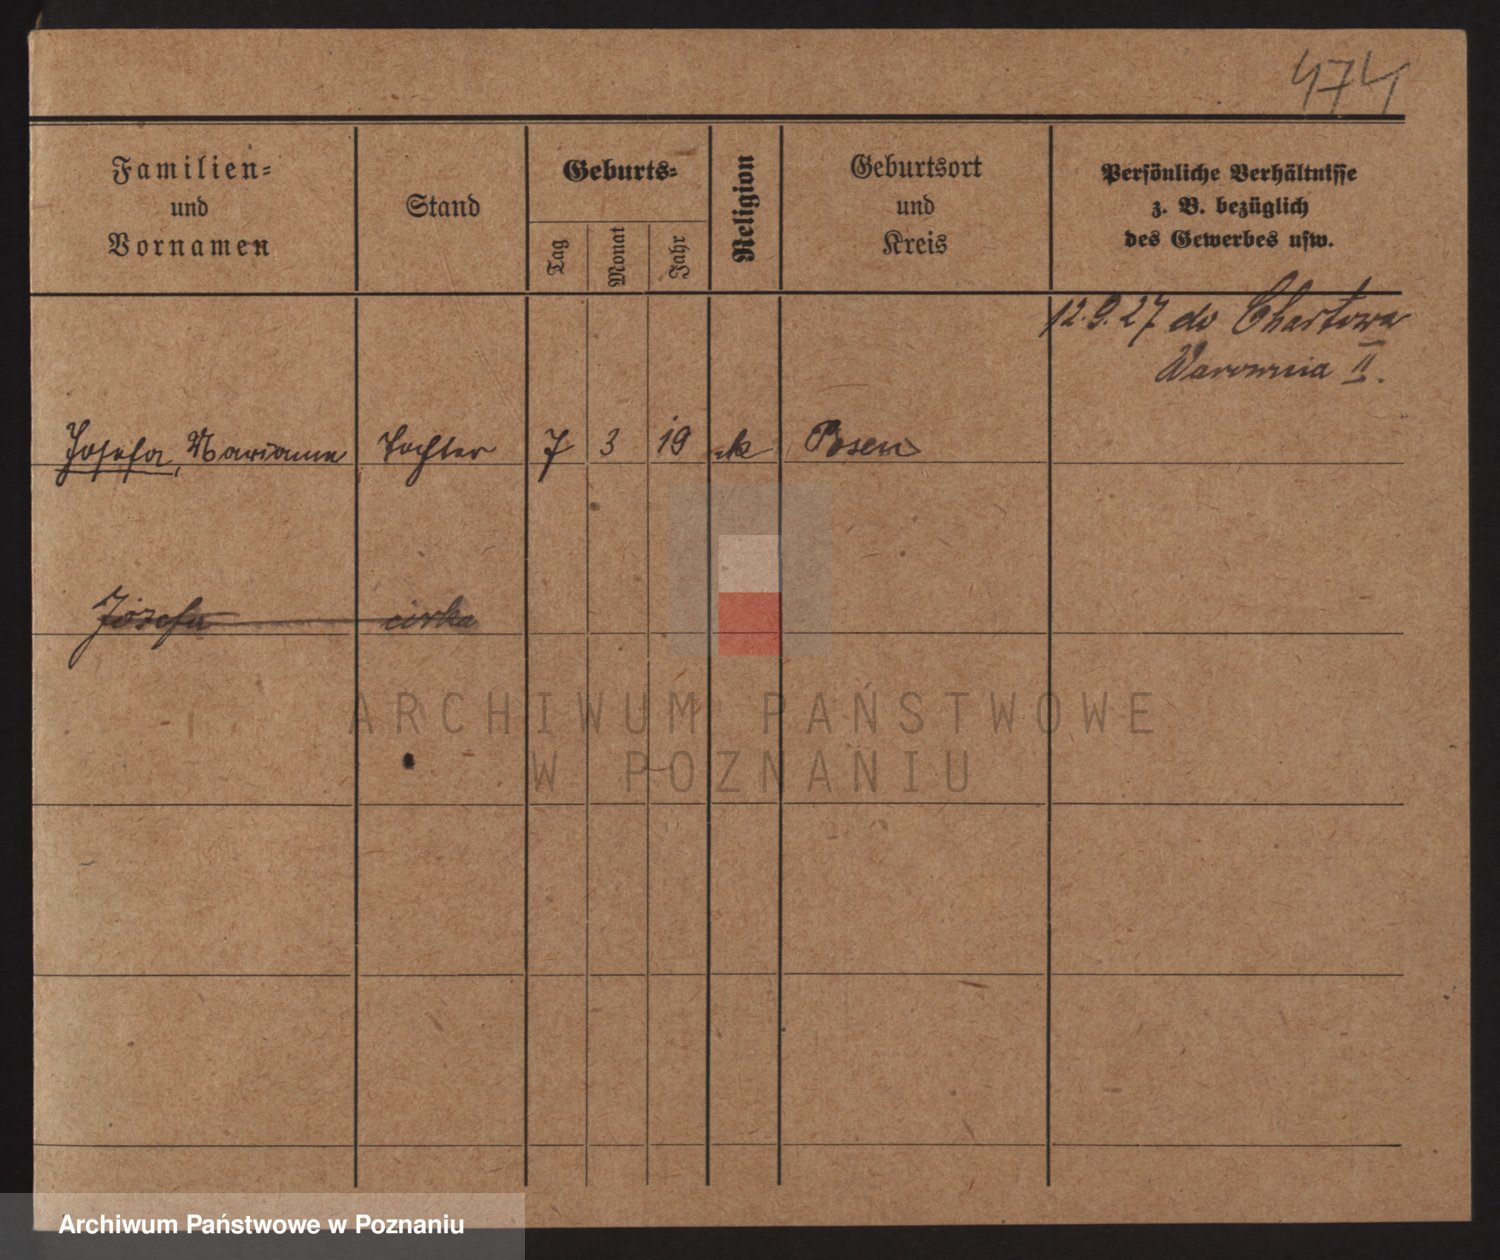 474
Familien-
und
Vornamen
Stand
Geburts-
Tag
Monat
Jahr
Religion
Geburtsort
und
Kreis
Persönliche Verhältnisse
z. B. bezüglich
des Gewerbes usw.
12.9.27 do Chartowa
Warownia II.
Josefa, Marianna Tochter 7 3 19 k Posen
Józefa córka
ARCHIWUM PAŃSTWOWE
W POZNANIU
Archiwum Państwowe w Poznaniu